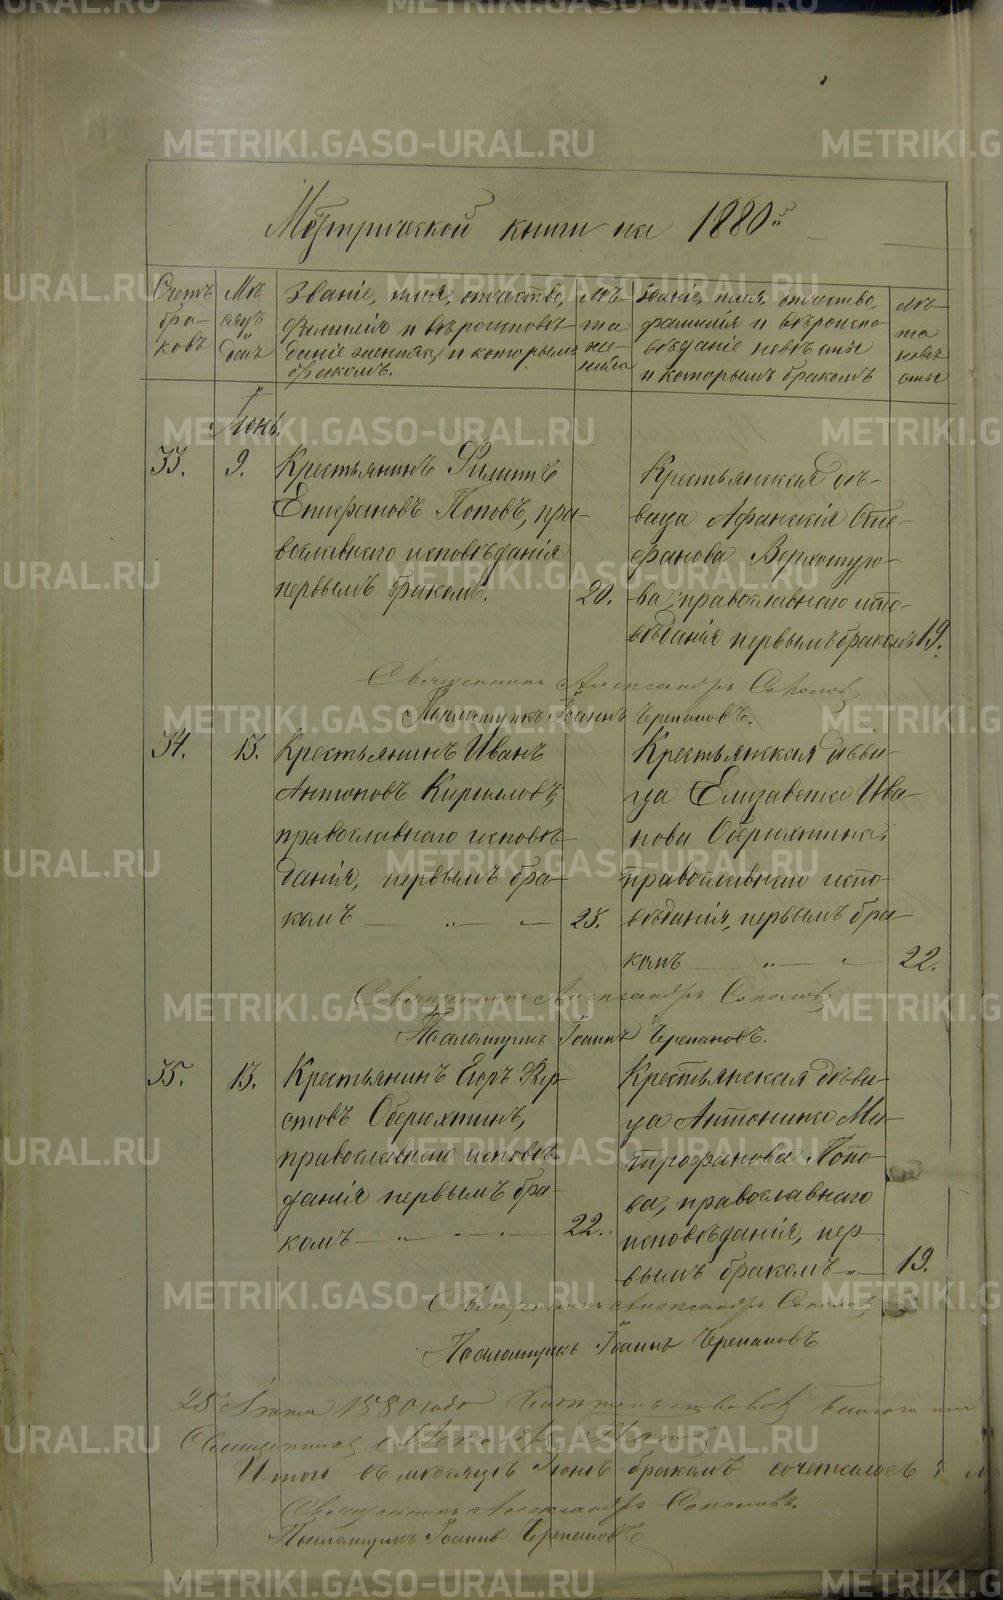 Метрической книги на 1880й
Счетъ браковъ
Мѣсяцъ и день
Званіе, имя, отчество,
фамилія и вѣроисповѣ-
даніе жениха, и которымъ
бракомъ.
Лѣ-
та
же-
ниха
Званіе, имя, отчество,
фамилія и вѣроиспо-
вѣданіе невѣсты
и которымъ бракомъ
Лѣ-
та
невѣ-
сты
Іюнь.
33. 9.
Крестьянинъ Филиппъ
Епифановъ Поповъ, пра-
вославнаго исповѣданія
первымъ бракомъ. 20.
Крестьянская дѣ-
вица Афанасія Сте-
фанова Верхотуро-
ва, православнаго испо-
вѣданія первымъ бракомъ 19.
Священникъ Александръ Соколовъ
Псаломщикъ Іоаннъ Черепановъ.
34. 13.
Крестьянинъ Иванъ
Антоновъ Кирилловъ,
православнаго исповѣ-
данія, первымъ бра-
комъ — „ — 25.
Крестьянская дѣви-
ца Елизавета Ива-
нова Оберюхтина,
православнаго испо-
вѣданія, первымъ бра-
комъ — „ — 22.
Священникъ Александръ Соколовъ
Псаломщикъ Іоаннъ Черепановъ.
35. 13.
Крестьянинъ Егоръ
стовъ Оберюхтинъ,
православнаго исповѣ-
данія первымъ бра-
комъ — „ — 22.
Крестьянская дѣви-
ца Антонина Ми-
трофанова Попо-
ва, православнаго
исповѣданія, пер-
вымъ бракомъ „ — 19.
Священникъ Александръ Соколовъ
Псаломщикъ Іоаннъ Черепановъ
25 1880 года
Священникъ
Итого въ мѣсяцѣ Іюнѣ бракомъ сочеталось
Священникъ Александръ Соколовъ.
Псаломщикъ Іоаннъ Черепановъ
METRIKI.GASO-URAL.RU